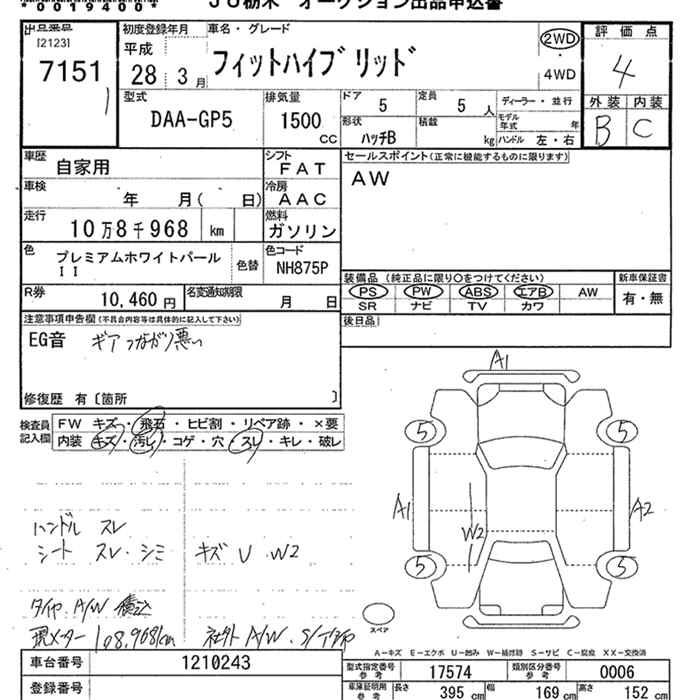 *0019400*
JU栃木 オークション出品申込書
出品番号
[2123]
7151
初度登録年月
平成
28 3月
車名・グレード
フィットハイブリッド
2WD
4WD
評価点
4
外装 内装
B C
型式
DAA-GP5
排気量
1500
CC
ドア
5
定員
5 人
形状
ハッチB
積載
kg
ディーラー・並行
モデル年式 年
ハンドル 左・右
車歴
自家用
シフト
FAT
車検
年 月( 日)
冷房
AAC
走行
10万8千968 km
燃料
ガソリン
色
プレミアムホワイトパール
II
色替
色コード
NH875P
R券
10,460 円
名変通知期限
月 日
セールスポイント(正常に機能するものに限ります)
AW
装備品(純正品に限り○をつけてください)
PS PW ABS エアB AW
SR ナビ TV カワ
新車保証書
有・無
後日品
注意事項申告欄(不具合内容等は具体的に記入して下さい)
EG音 ギアつながり悪い
修復歴 有〔箇所 〕
検査員記入欄
FW キズ・飛石・ヒビ割・リペア跡・×要
内装 キズ・汚レ・コゲ・穴・スレ・キレ・破レ
ハンドル スレ
シート スレ・シミ キズ U W2
タイヤ A/W 積込
現メーター 108,968km 社外 A/W
A1
5 5
A1 A2
W2
5 5
スペア
A-キズ E-エクボ U-凹み W-補修跡 S-サビ C-腐食 XX-交換済
車台番号
1210243
登録番号
型式指定番号
参考
17574
類別区分番号
参考
0006
車庫証明用
参考
長さ 395 cm
幅 169 cm
高さ 152 cm